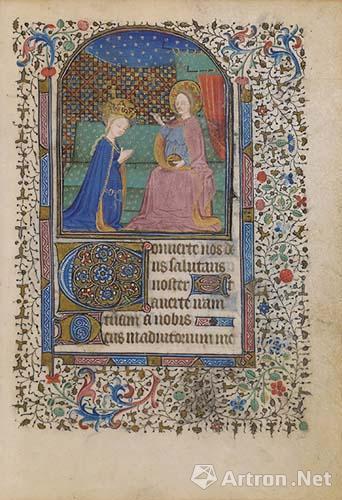 Converte nos de
us salutaris
noster Et
averte iram
tuam a nobis
Deus in adiutorium me
Artron.Net